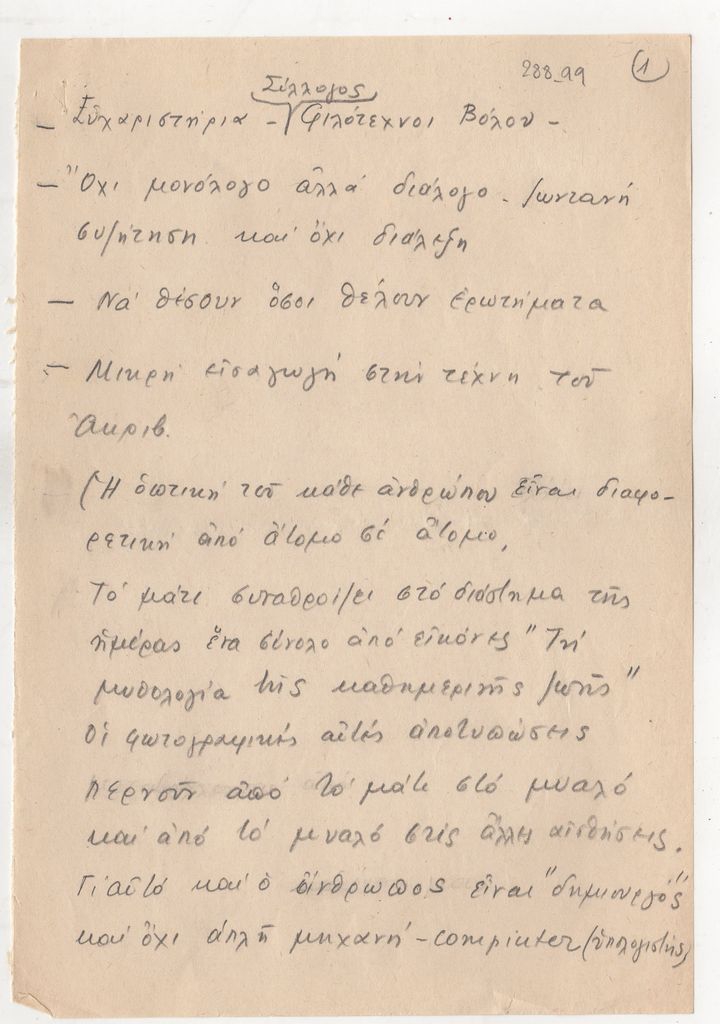 288_99 (1)
Σύλλογος
– Εὐχαριστήρια – Φιλότεχνοι Βόλου –
– Ὄχι μονόλογο ἀλλά διάλογο. ζωντανή
συζήτηση καί ὄχι διάλεξη
– Νά θέσουν ὅσοι θέλουν ἐρωτήματα
– Μικρή εἰσαγωγή στήν τέχνη τοῦ
Ἀκριβ.
(Ἡ ὀπτική τοῦ κάθε ἀνθρώπου εἶναι διαφο-
ρετική ἀπό ἄτομο σέ ἄτομο,
Τό μάτι συναθροίζει στό διάστημα τῆς
ἡμέρας ἕνα σύνολο ἀπό εἰκόνες "Τή
μυθολογία τῆς καθημερινῆς ζωῆς"
Οἱ φωτογραφικές αὐτές ἀποτυπώσεις
περνοῦν ἀπό τό μάτι στό μυαλό
καί ἀπό τό μυαλό στίς ἄλλες αἰσθήσεις.
Γιαὐτό καί ὁ ἄνθρωπος εἶναι "δημιουργός"
καί ὄχι ἁπλή μηχανή – computer (ὑπολογιστής)